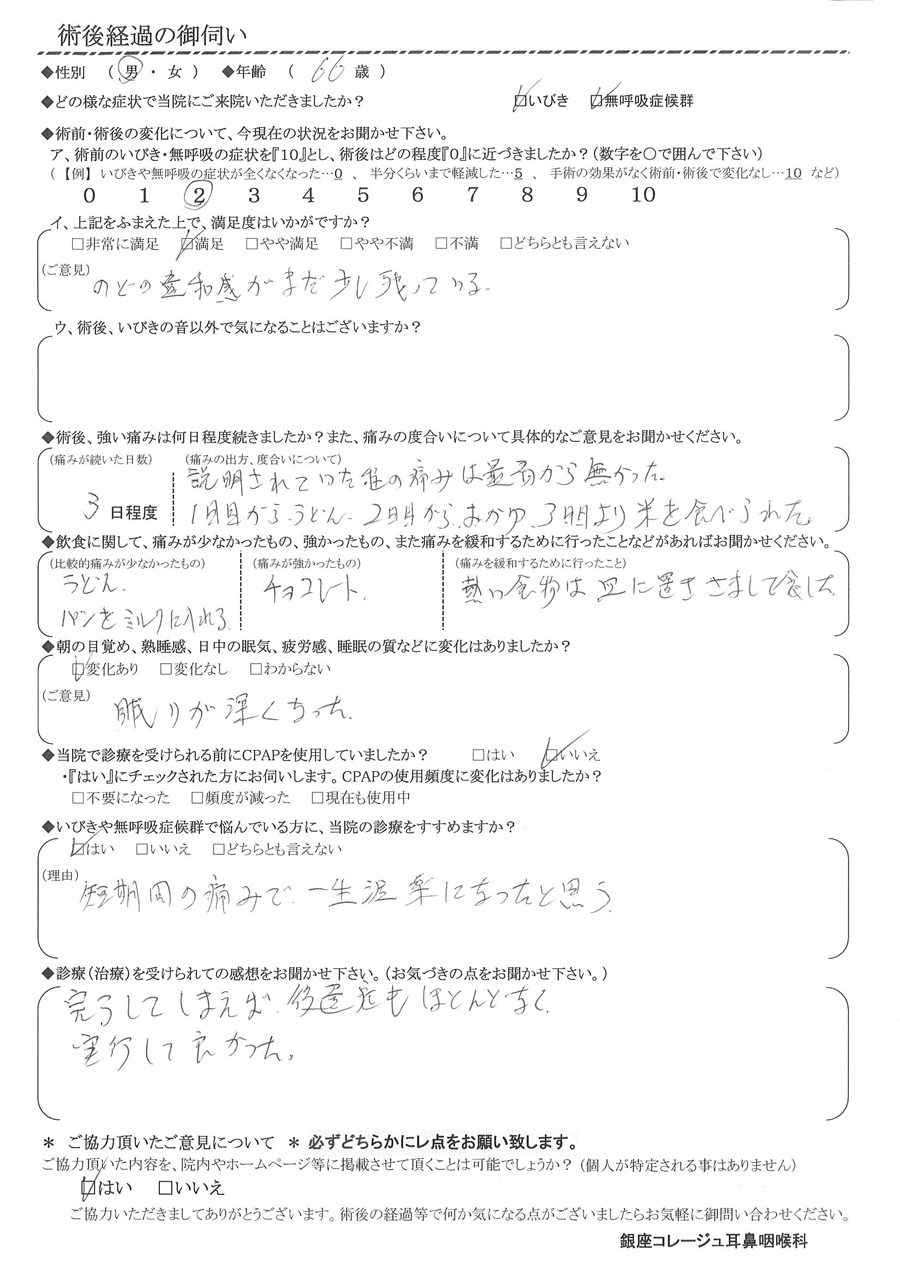 術後経過の御伺い
◆性別 （ 男 ・ 女 ） ◆年齢 （ 66 歳 ）
◆どの様な症状で当院にご来院いただきましたか？ ☑いびき ☑無呼吸症候群
◆術前・術後の変化について、今現在の状況をお聞かせ下さい。
ア、術前のいびき・無呼吸の症状を『10』とし、術後はどの程度『0』に近づきましたか？（数字を〇で囲んで下さい）
（ 【例】 いびきや無呼吸の症状が全くなくなった…0 、 半分くらいまで軽減した…5 、 手術の効果がなく術前・術後で変化なし…10 など）
0 1 2 3 4 5 6 7 8 9 10
イ、上記をふまえた上で、満足度はいかがですか？
□非常に満足 ☑満足 □やや満足 □やや不満 □不満 □どちらとも言えない
（ご意見）
のどの違和感がまだ少し残っている。
ウ、術後、いびきの音以外で気になることはございますか？
◆術後、強い痛みは何日程度続きましたか？また、痛みの度合いについて具体的なご意見をお聞かせください。
（痛みが続いた日数） （痛みの出方、度合いについて）
説明されていた程の痛みは最初から無かった。
3 日程度 1日目からうどん、2日目から、おかゆ、3日目より米を食べられた。
◆飲食に関して、痛みが少なかったもの、強かったもの、また痛みを緩和するために行ったことなどがあればお聞かせください。
（比較的痛みが少なかったもの） （痛みが強かったもの） （痛みを緩和するために行ったこと）
うどん、 チョコレート、 熱い食物は皿に置きさまして食した
パンをミルクに入れる
◆朝の目覚め、熟睡感、日中の眠気、疲労感、睡眠の質などに変化はありましたか？
☑変化あり □変化なし □わからない
（ご意見）
眠りが深くなった。
◆当院で診療を受けられる前にCPAPを使用していましたか？ □はい ☑いいえ
・『はい』にチェックされた方にお伺いします。CPAPの使用頻度に変化はありましたか？
□不要になった □頻度が減った □現在も使用中
◆いびきや無呼吸症候群で悩んでいる方に、当院の診療をすすめますか？
☑はい □いいえ □どちらとも言えない
（理由）
短期間の痛みで、一生涯楽になったと思う。
◆診療（治療）を受けられての感想をお聞かせ下さい。（お気づきの点をお聞かせ下さい。）
完了してしまえば、後遺症もほとんどなく
実行して良かった。
＊ ご協力頂いたご意見について ＊ 必ずどちらかにレ点をお願い致します。
ご協力頂いた内容を、院内やホームページ等に掲載させて頂くことは可能でしょうか？（個人が特定される事はありません）
☑はい □いいえ
ご協力いただきましてありがとうございます。術後の経過等で何か気になる点がございましたらお気軽に御問い合わせください。
銀座コレージュ耳鼻咽喉科